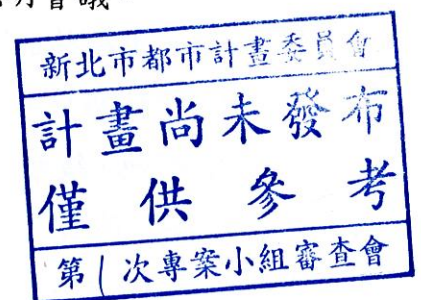 會議
新北市都市計畫委員會
計畫尚未發布
僅供參考
第1次專案小組審查會